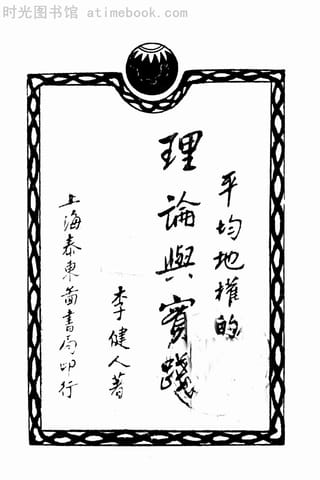 时光图书馆 - atimebook.com
平均地權的
理論與實踐
李健人著
上海泰東圖書局印行